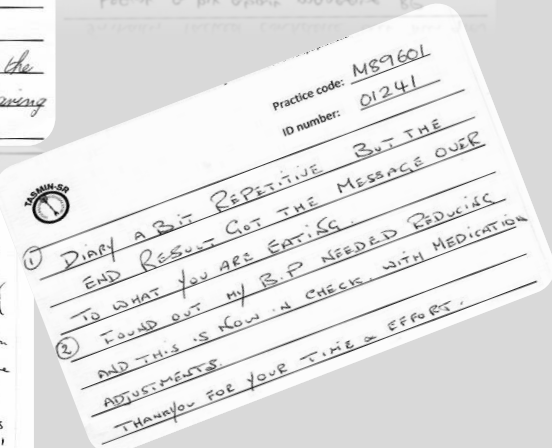 the
aring
Practice code: M89601
ID number: 01241
TASMIN-SR
① DIARY A BIT REPETITIVE BUT THE
END RESULT GOT THE MESSAGE OVER
TO WHAT YOU ARE EATING.
② FOUND OUT MY B.P NEEDED REDUCING
AND THIS IS NOW IN CHECK. WITH MEDICATION
ADJUSTMENTS.
THANKYOU FOR YOUR TIME & EFFORT.